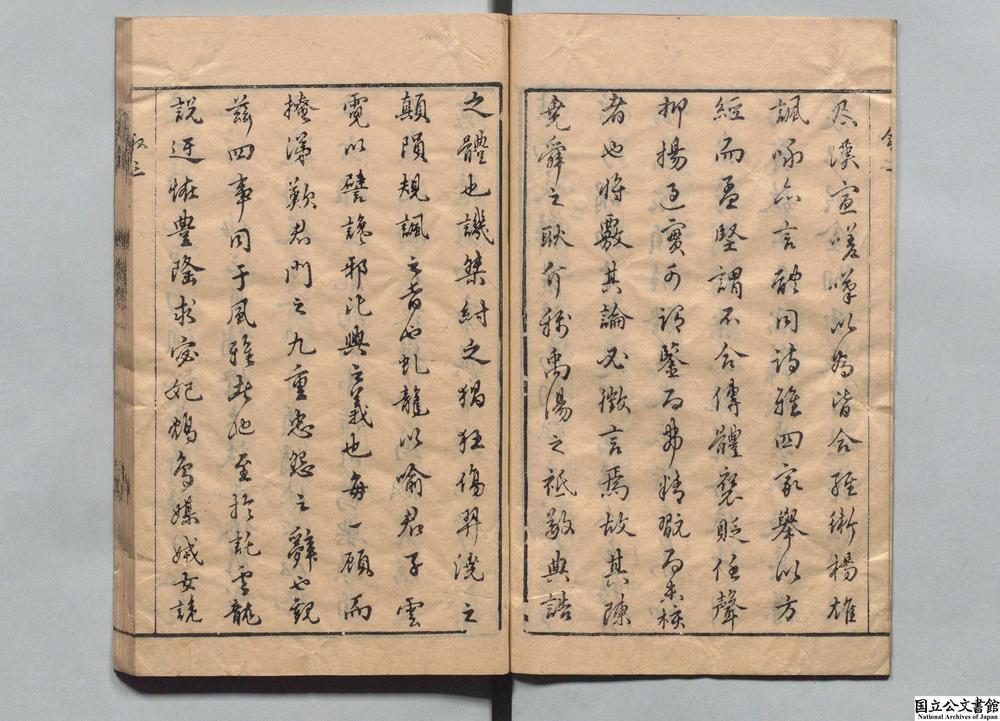 叙二
及漢宣嗟嘆以為皆合經術揚雄
諷咏亦言體同詩雅四家舉以方
經而孟堅謂不合傳體褒貶任聲
抑揚過實可謂鑒而弗精翫而未核
者也將覈其論必徵言焉故其陳
堯舜之耿介稱禹湯之祗敬典誥
之體也譏桀紂之猖狂傷羿澆之
顛隕規諷之旨也虬龍以喻君子雲
霓以譬讒邪比興之義也每一顧而
掩涕歎君門之九重忠怨之辭也觀
茲四事同于風雅者也至於託雲龍
說迂怪豐隆求宓妃鴆鳥媒娀女詭
叙三
国立公文書館
National Archives of Japan